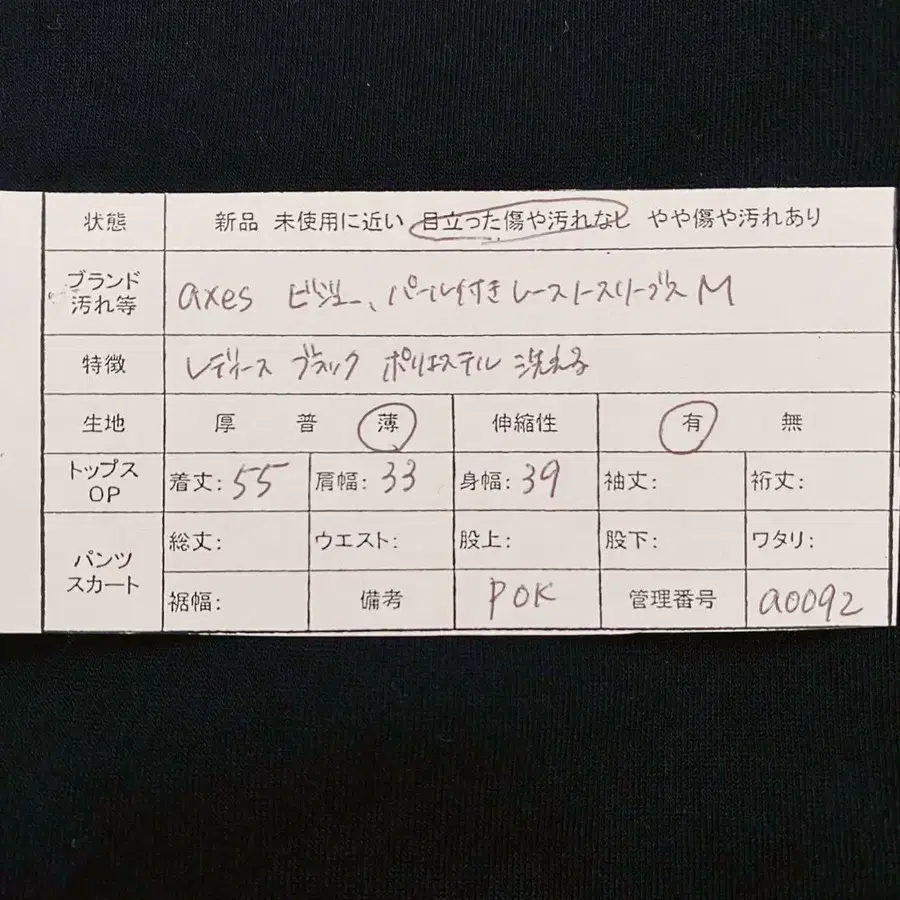 状態 新品 未使用に近い 目立った傷や汚れなし やや傷や汚れあり
ブランド
汚れ等 axes ビジュー、パール付きレースノースリーブス M
特徴 レディース ブラック ポリエステル 洗える
生地 厚 普 薄 伸縮性 有 無
トップス
OP 着丈: 55 肩幅: 33 身幅: 39 袖丈: 裄丈:
パンツ
スカート 総丈: ウエスト: 股上: 股下: ワタリ:
裾幅: 備考 POK 管理番号 a0092